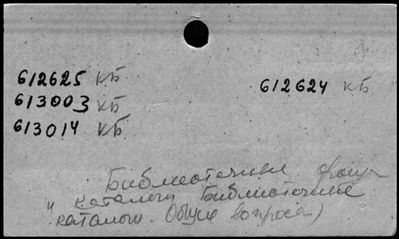 612625 КБ 612624 КБ
613003 КБ
613014 КБ
Библиотечные фонды
" каталоги Библиотечные
каталоги. Общие вопросы)